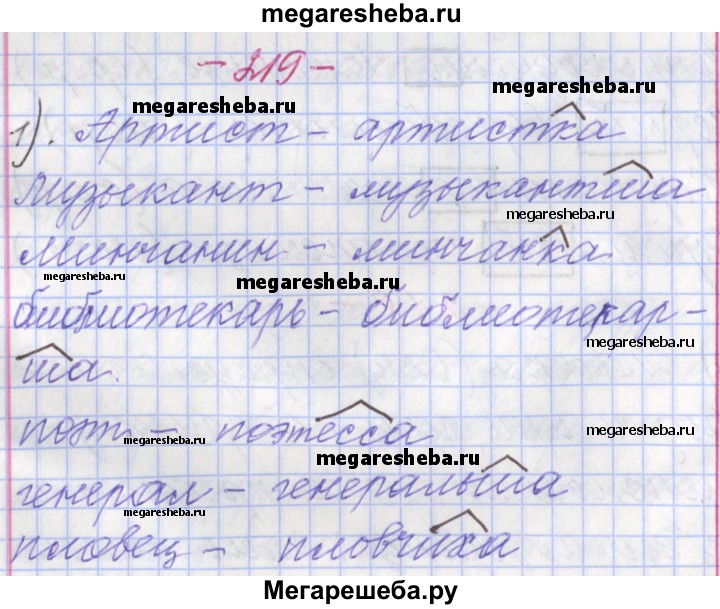 megaresheba.ru
- 319 -
megaresheba.ru
megaresheba.ru
1). Артист - артистка
музыкант - музыкантша
megaresheba.ru
Минчанин - минчанка
megaresheba.ru
megaresheba.ru
библиотекарь - библиотекар-
megaresheba.ru
ша.
поэт - поэтесса
megaresheba.ru
megaresheba.ru
megaresheba.ru
генерал - генеральша
megaresheba.ru
пловец - пловчиха
Мегарешеба.ру